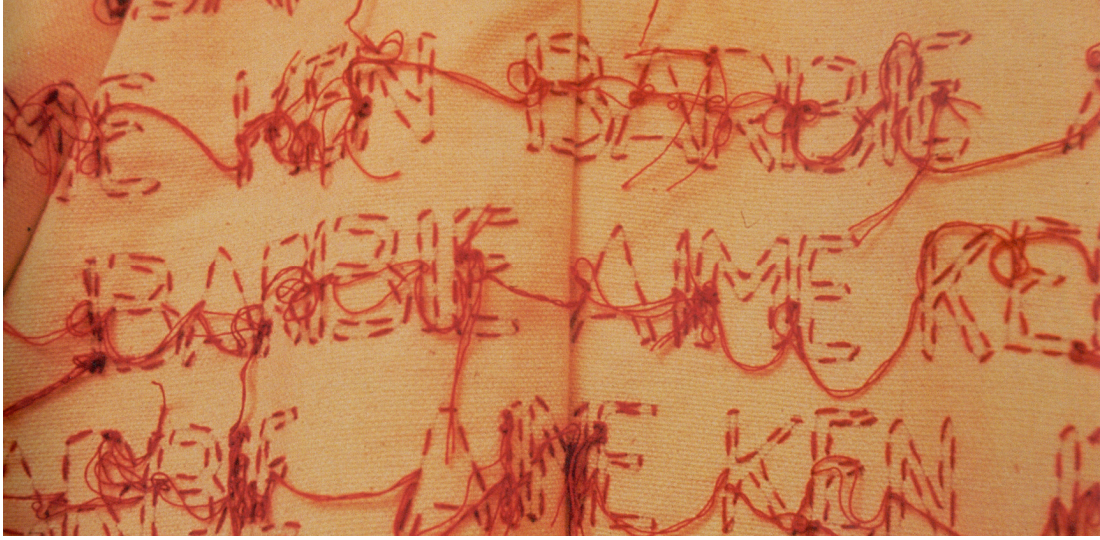 ME KEN BARBIE
BARBIE AIME KE
ARBIE AIME KEN